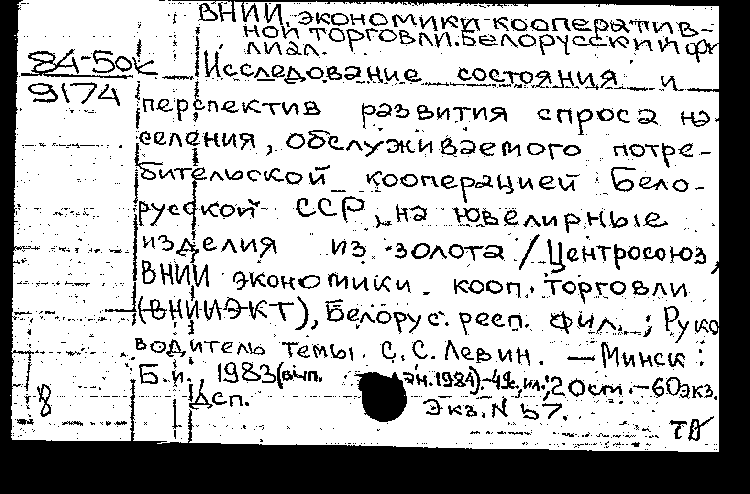 ВНИИ экономики кооператив-
ной торговли. Белорусский фи
лиал.
84-50к
9174
Исследование состояния и
перспектив развития спроса на-
селения, обслуживаемого потре-
бительской кооперацией Бело-
русской ССР, на ювелирные
изделия из золота / Центросоюз,
ВНИИ экономики кооп. торговли
(ВНИИЭКТ), Белорус. респ. фил. ; Руко
водитель темы С. С. Левин. — Минск :
Б. и. 1983 (вып. 1984). - 49с, ил.; 20 см. - 60 экз.
Дсп.
Экз. N 57.
8